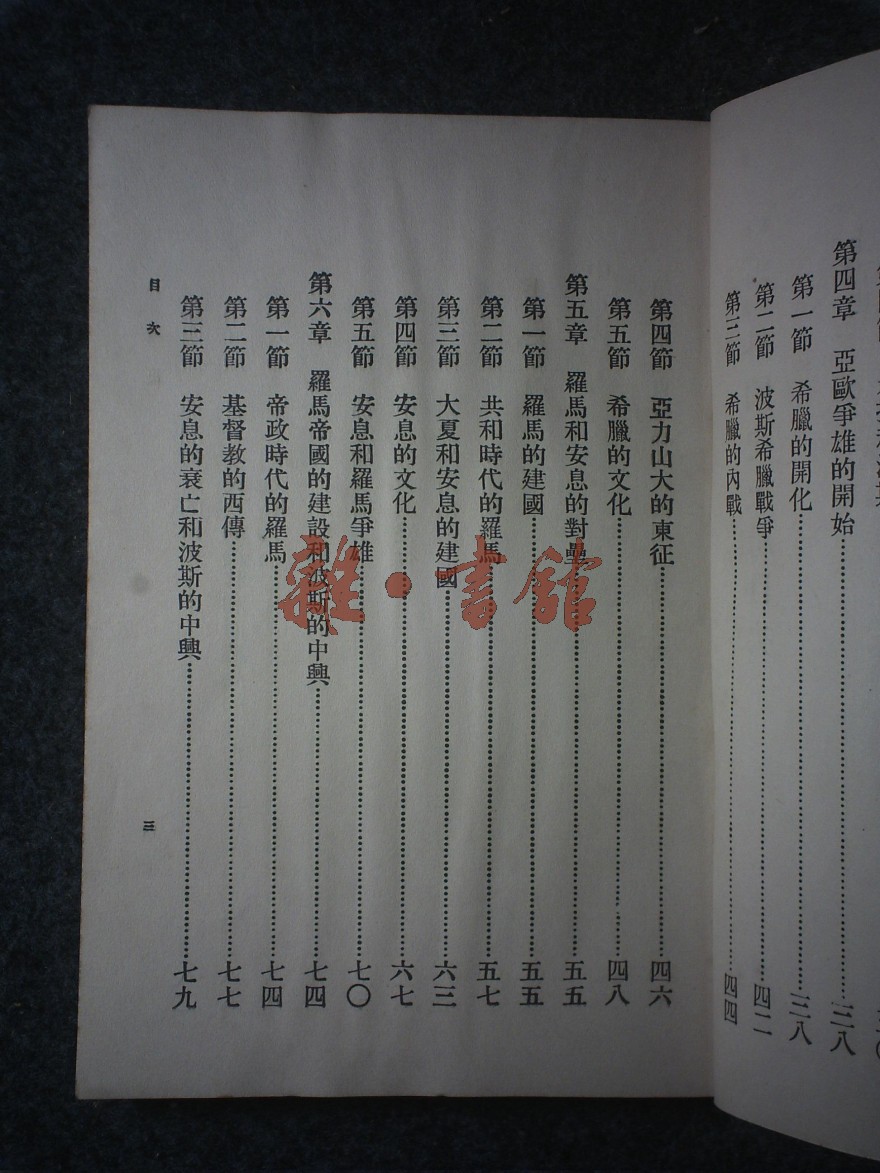 第四章 亞歐爭雄的開始……三八
第一節 希臘的開化……三八
第二節 波斯希臘戰爭……四二
第三節 希臘的內戰……四四
第四節 亞力山大的東征……四六
第五節 希臘的文化……四八
第五章 羅馬和安息的對壘……五五
第一節 羅馬的建國……五五
第二節 共和時代的羅馬……五七
第三節 大夏和安息的建國……六三
第四節 安息的文化……六七
第五節 安息和羅馬爭雄……七〇
第六章 羅馬帝國的建設和波斯的中興……七四
第一節 帝政時代的羅馬……七四
第二節 基督教的西傳……七七
第三節 安息的衰亡和波斯的中興……七九
目次 三
雜·書館